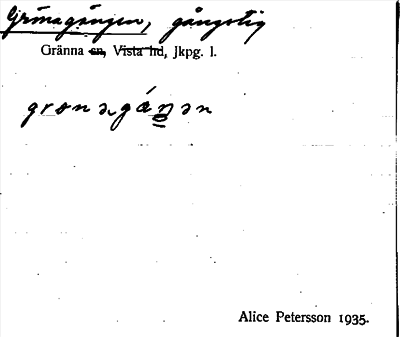 Grönagången, gångstig
Gränna sn, Vista hd, Jkpg. l.
grønagáŋən
Alice Petersson 1935.